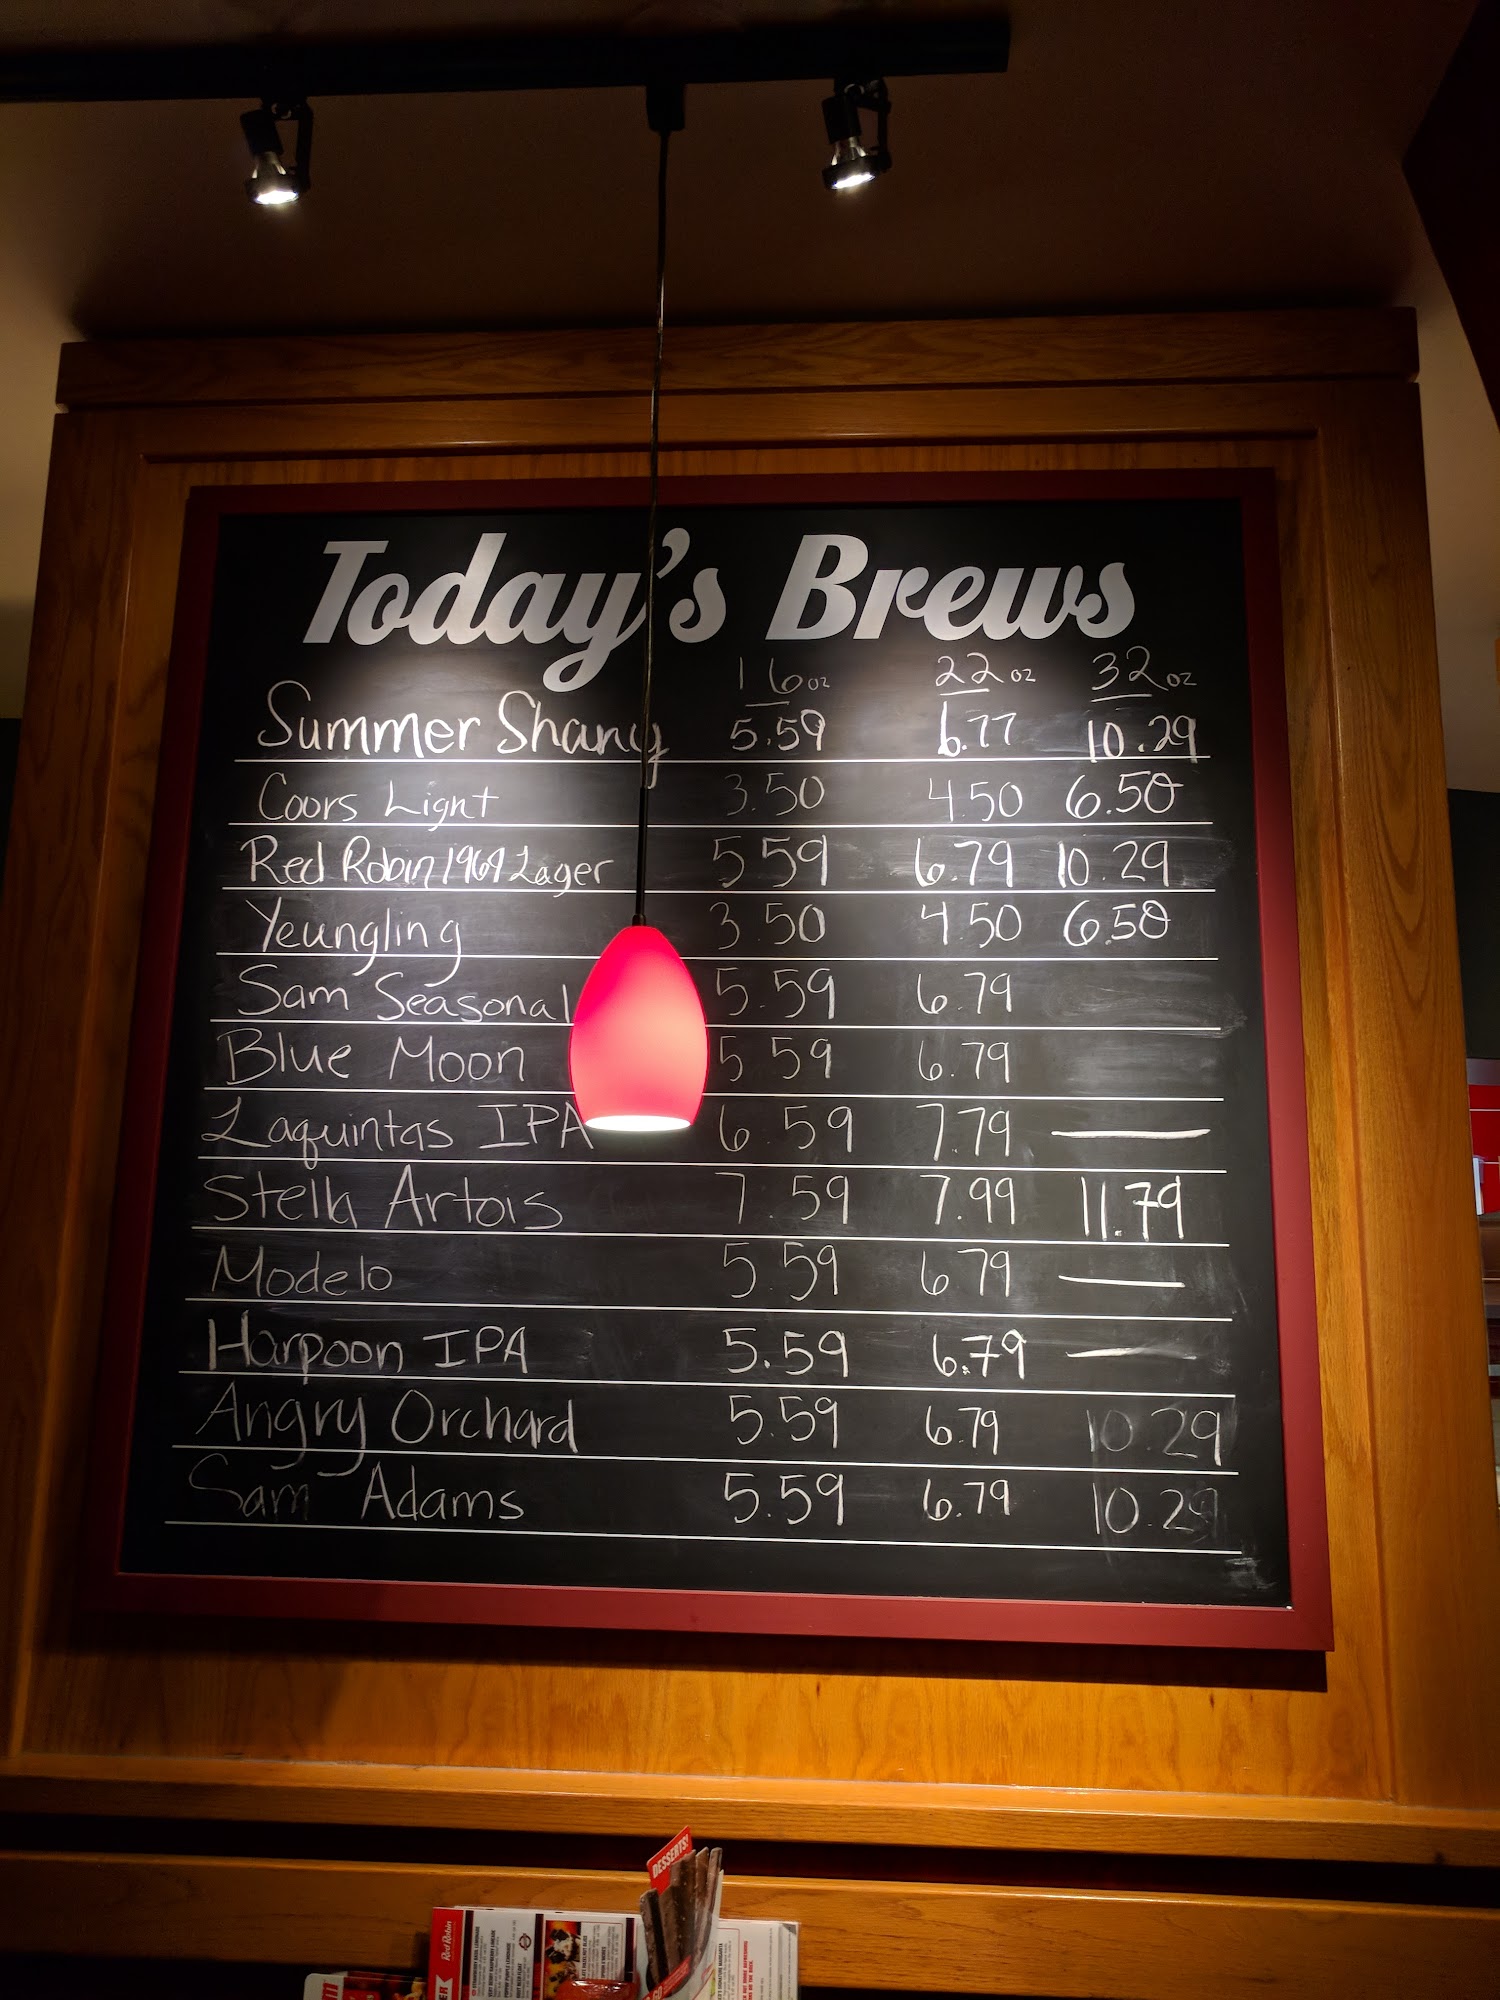 Today's Brews
16oz 22oz 32oz
Summer Shany 5.59 6.77 10.29
Coors Lignt 3.50 4.50 6.50
Red Robin 1969 Lager 5.59 6.79 10.29
Yeungling 3.50 4.50 6.50
Sam Seasonal 5.59 6.79
Blue Moon 5.59 6.79
Laquintas IPA 6.59 7.79 —
Stella Artois 7.59 7.99 11.79
Modelo 5.59 6.79 —
Harpoon IPA 5.59 6.79 —
Angry Orchard 5.59 6.79 10.29
Sam Adams 5.59 6.79 10.29
DESSERTS!
Red Robin